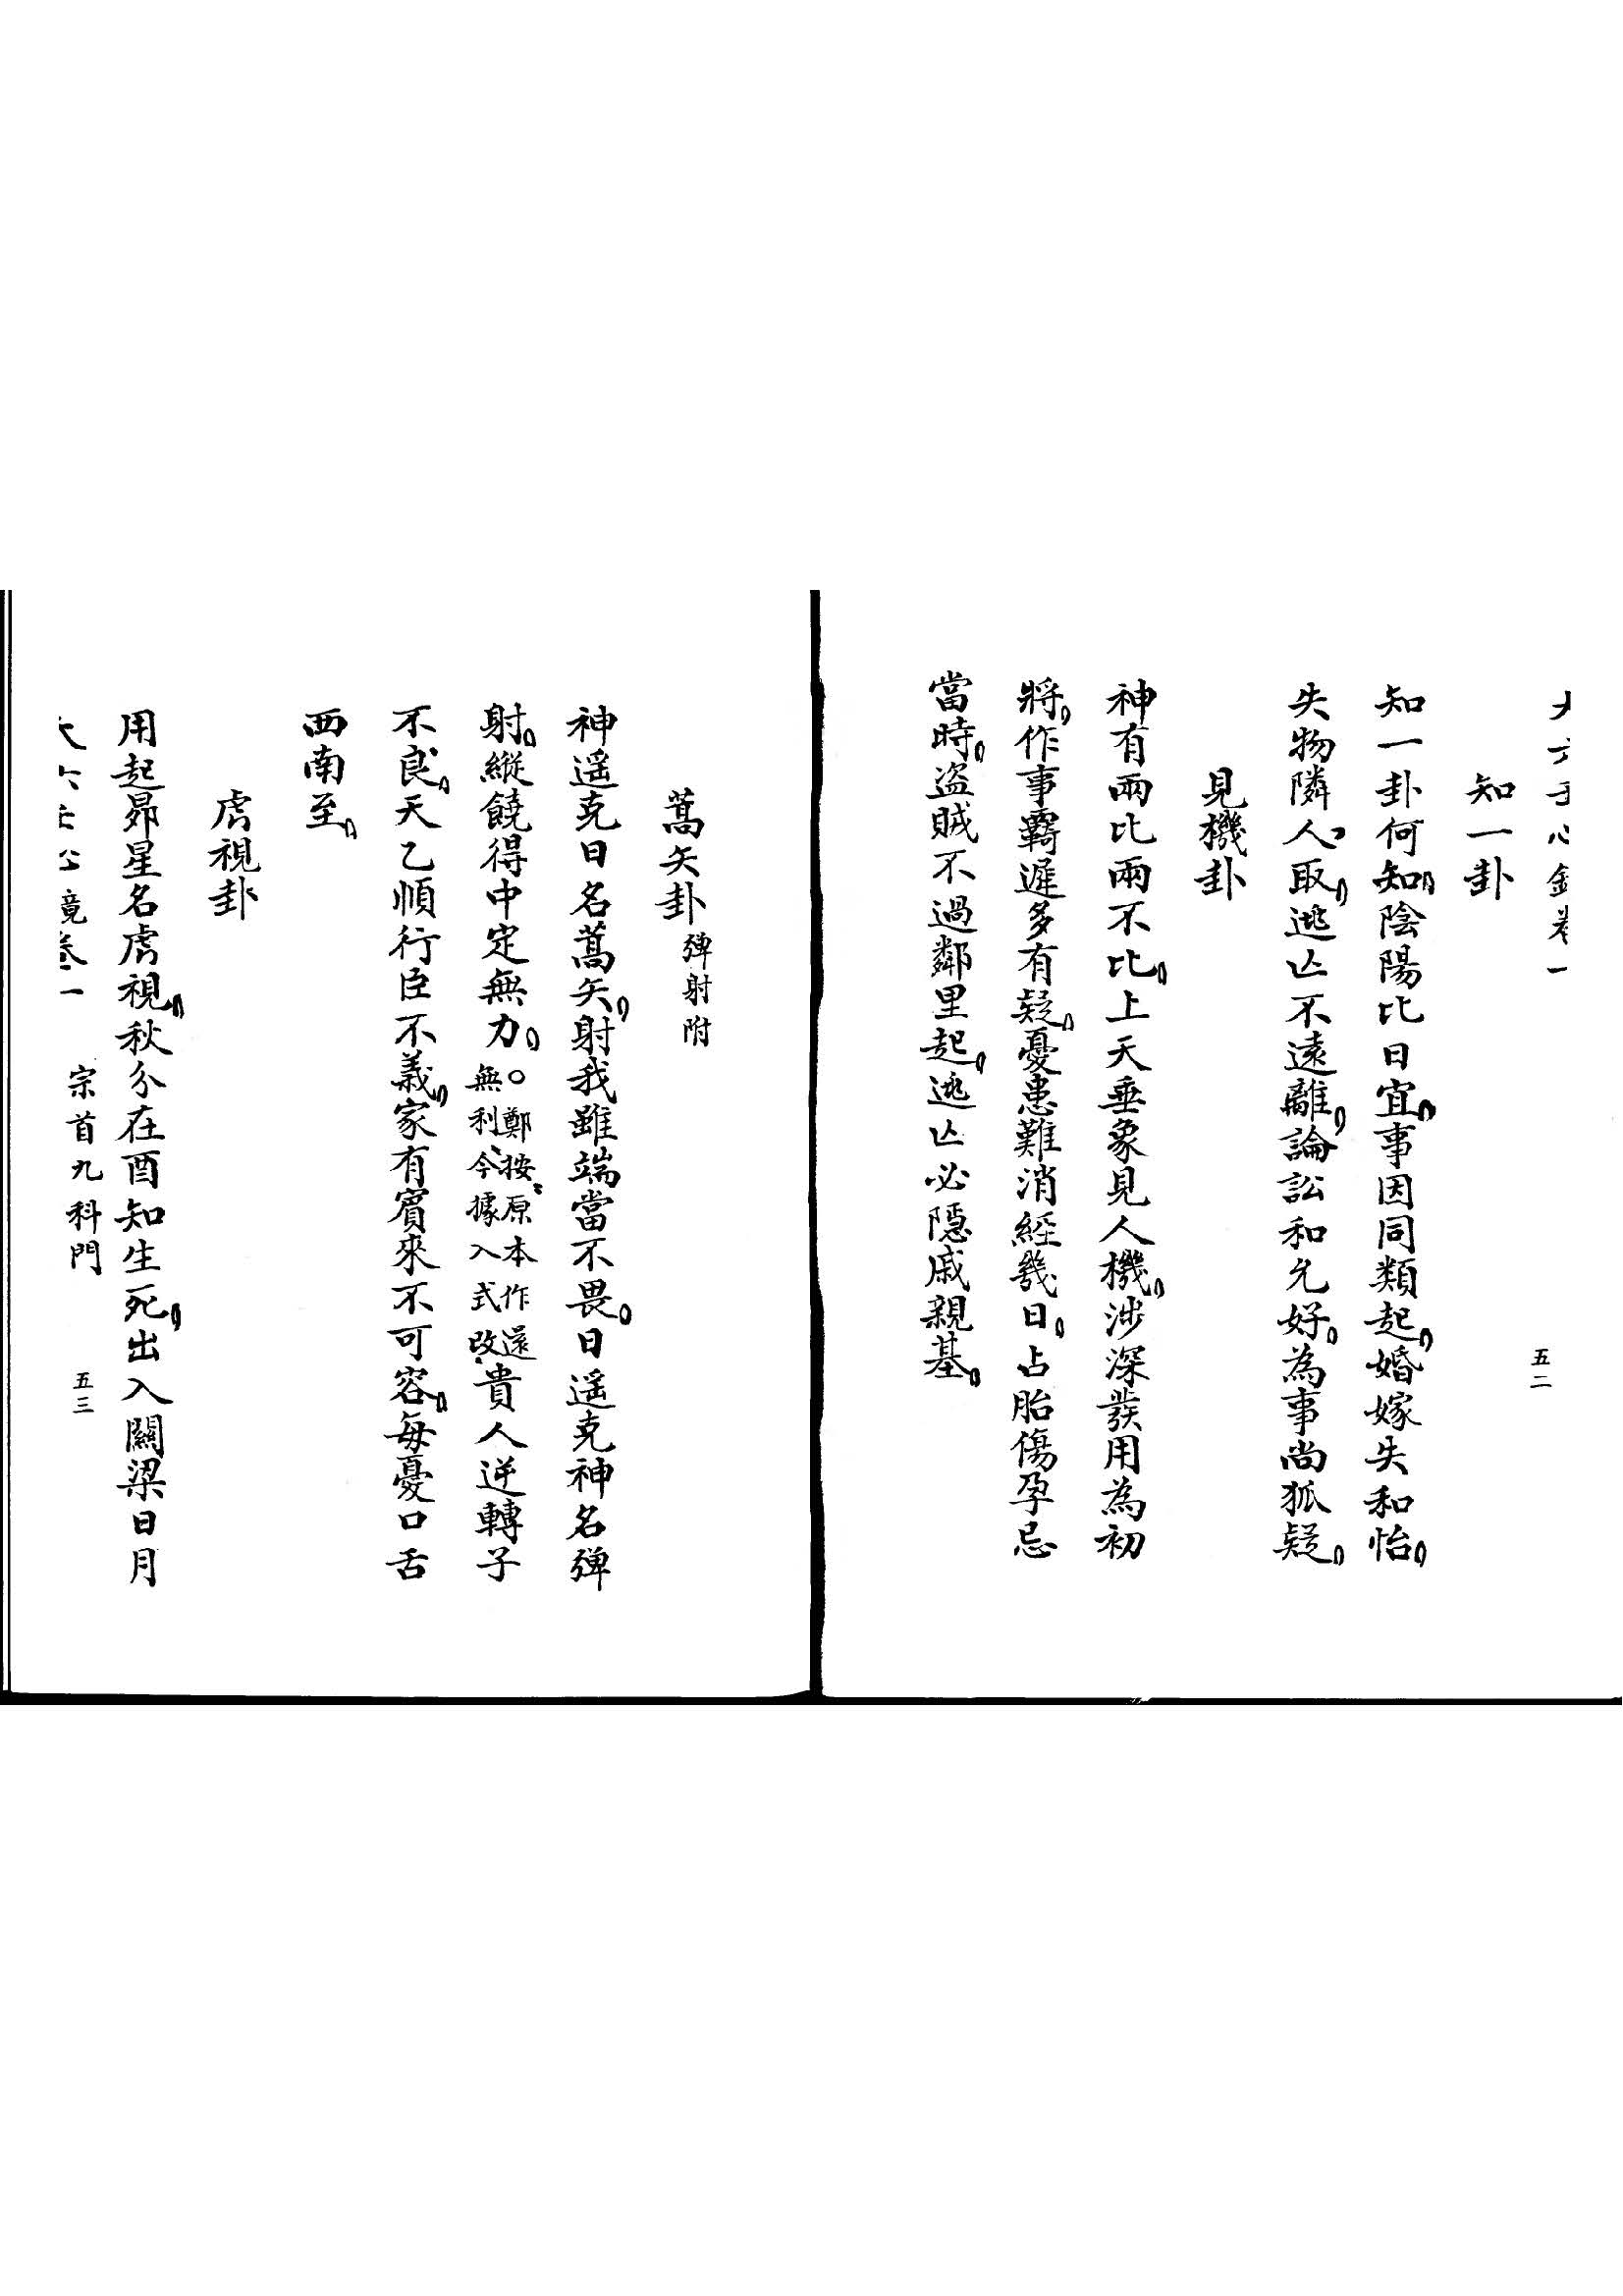 知一卦
知一卦何知陰陽比日宜事因同類起婚嫁失和怡
失物隣人取逃亡不遠離論訟和允好為事尚狐疑
見機卦
神有兩比兩不比上天垂象見人機涉深發用為初
將作事䨥遲多有疑憂患難消經幾日占胎傷孕忌
當時盜賊不過鄰里起逃亡必隱戚親基
五二
蒿矢卦 彈射附
神遥克日名蒿矢射我雖端當不畏日遥克神名彈
射縱饒得中定無力○鄭按原本作還無利今據入式改貴人逆轉子
不良天乙順行臣不義家有賓來不可容每憂口舌
西南至
虎視卦
用起昴星名虎視秋分在酉知生死出入關梁日月
宗首九科門
五三